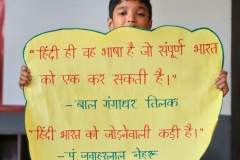 "हिंदी ही वह भाषा है जो संपूर्ण भारत
को एक कर सकती है।"
- बाल गंगाधर तिलक
"हिंदी भारत को जोड़नेवाली कड़ी है।"
- पं जवाहरलाल नेहरू